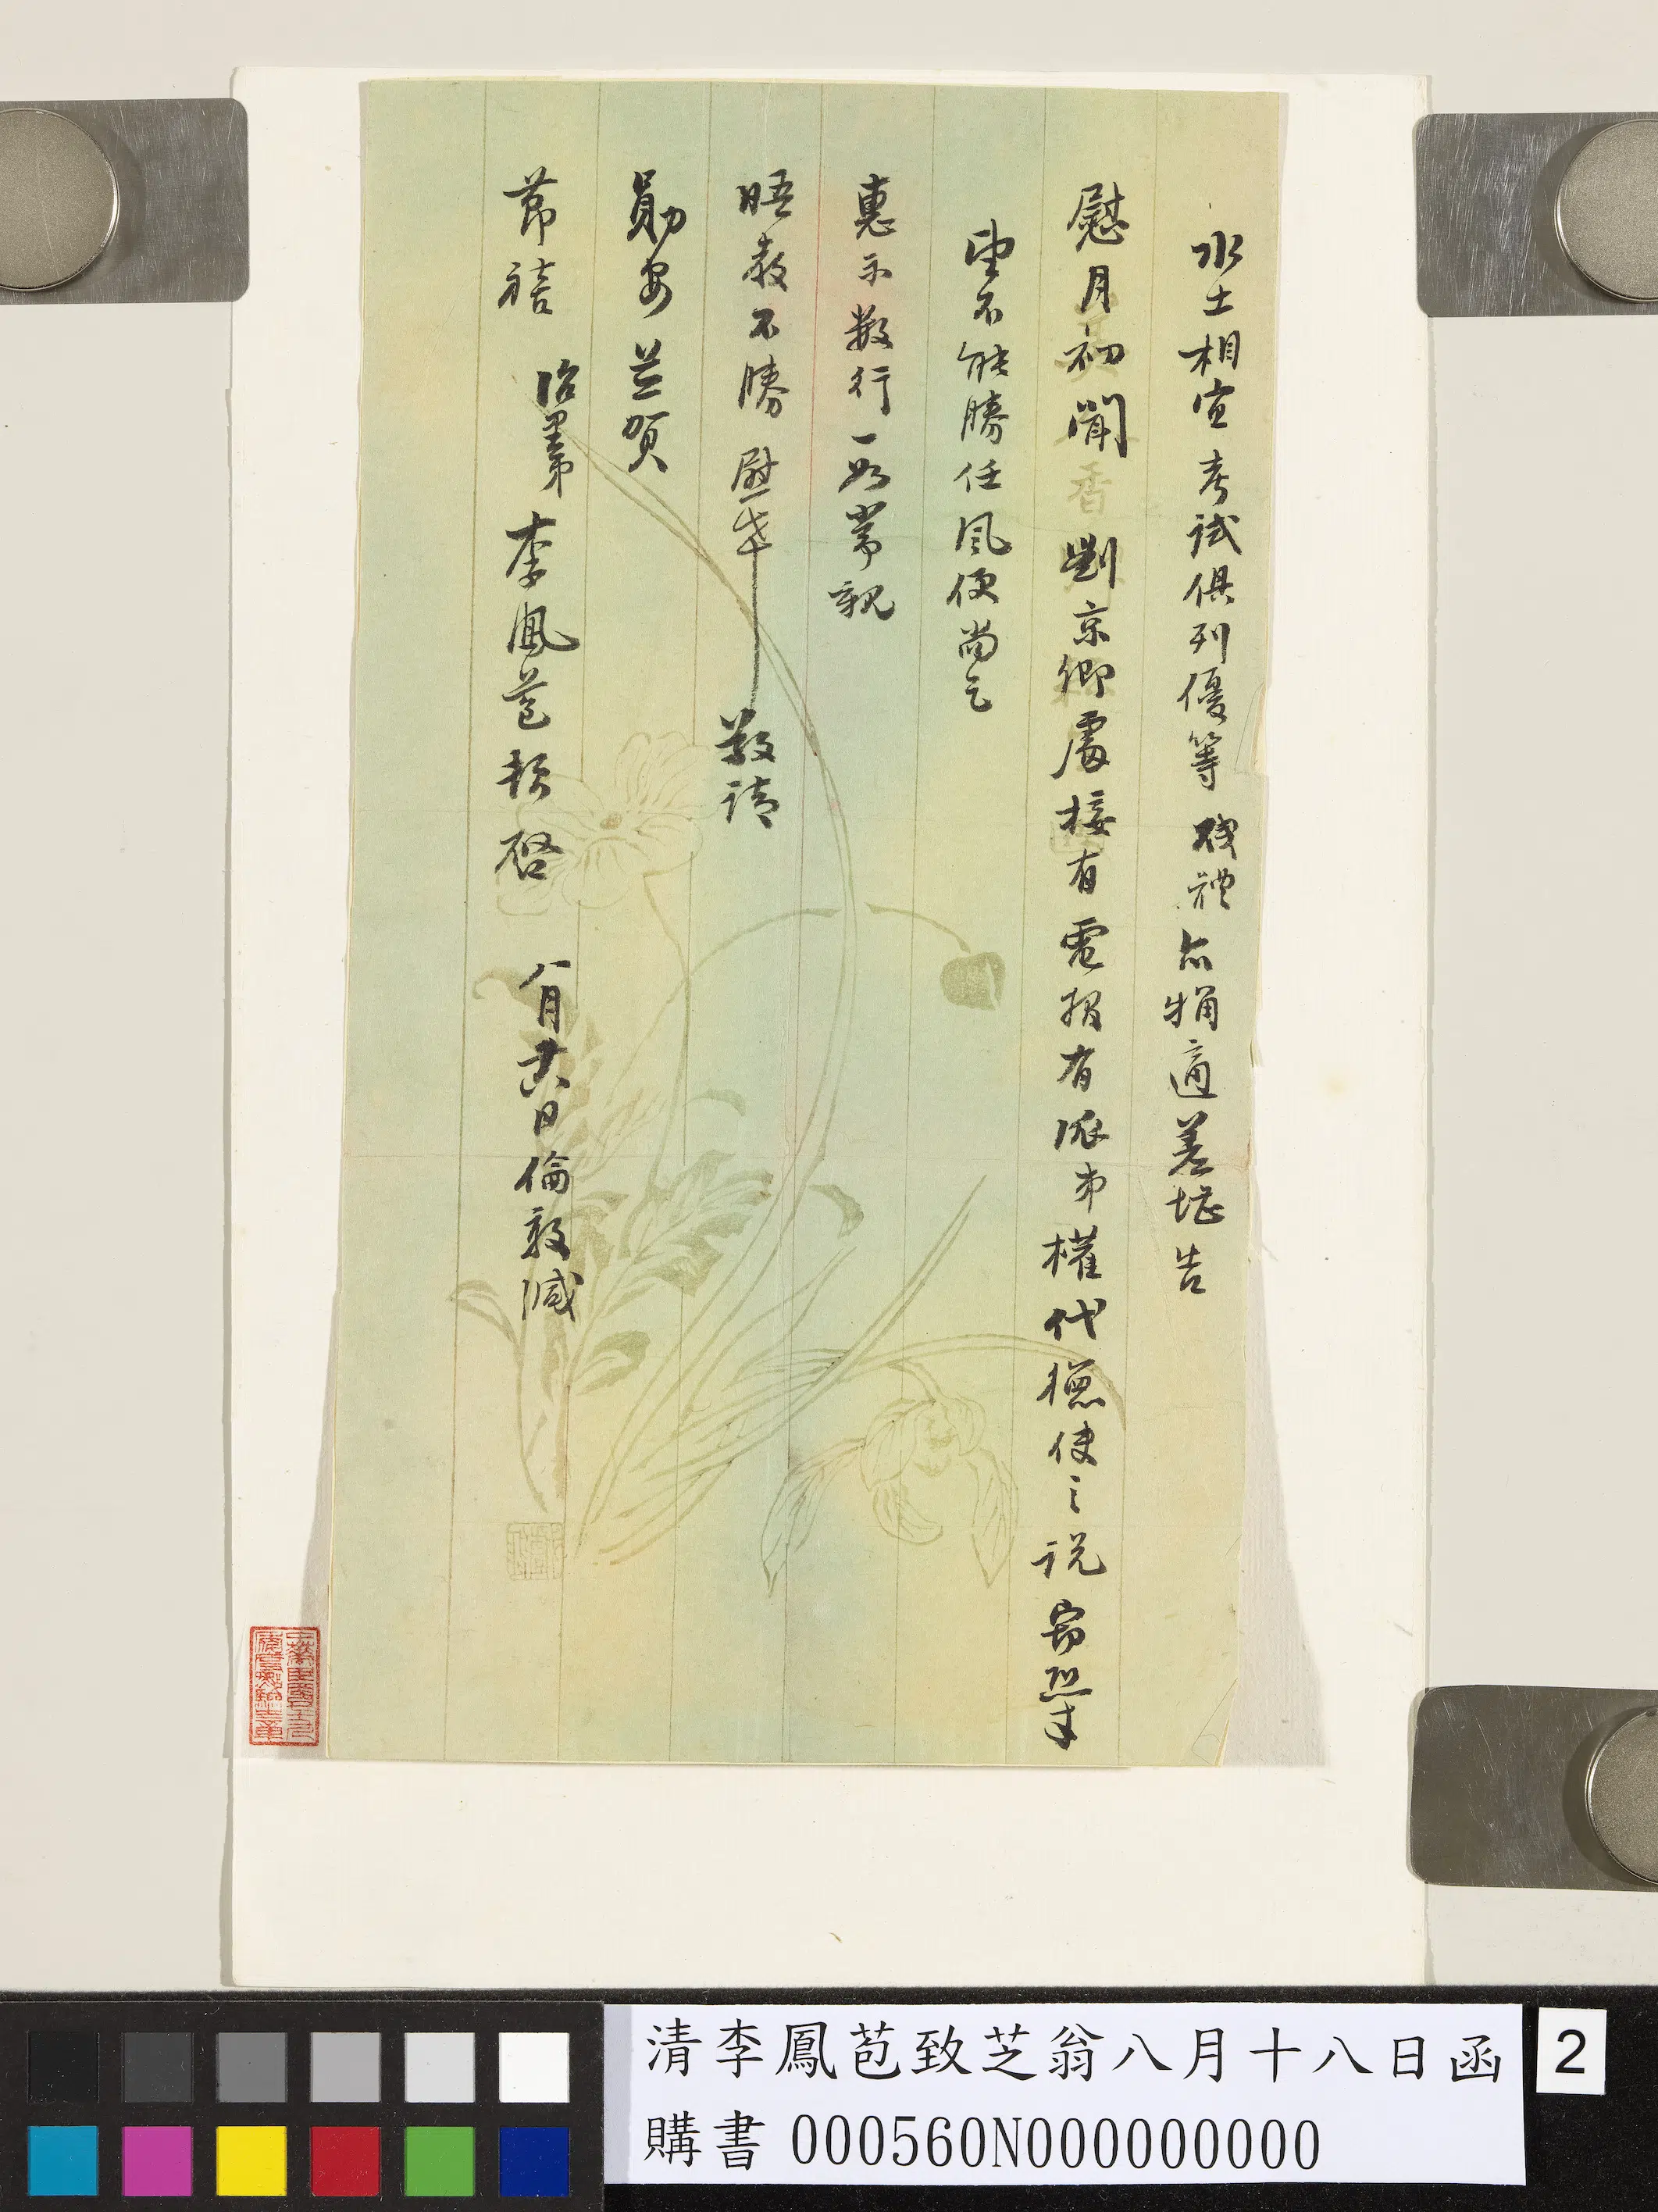 水土相宜考試俱列優等賤體亦稱適差堪告
慰月初聞劉京卿處接有電報有派弟權代德使之說宻熟手
望不能勝任風便尚乞
惠示數行一如常親
晤教不勝慰幸敬請
勛安並賀
節禧 治單弟李鳳苞頓啓 八月十八日倫敦緘
清李鳳苞致芝翁八月十八日函
購書 000560N000000000
2